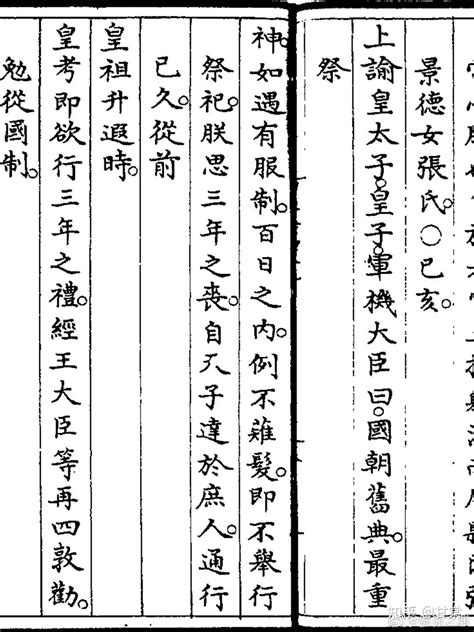 景德女張氏。○已亥。
上諭皇太子。皇子。軍機大臣曰。國朝舊典。最重
祭
神。如遇有服制。百日之內。例不薙髮。即不舉行
祭祀。朕思三年之喪。自天子達於庶人。通行
已久。從前
皇祖升遐時。
皇考即欲行三年之禮。經王大臣等再四敦勸。
勉從國制。
知乎